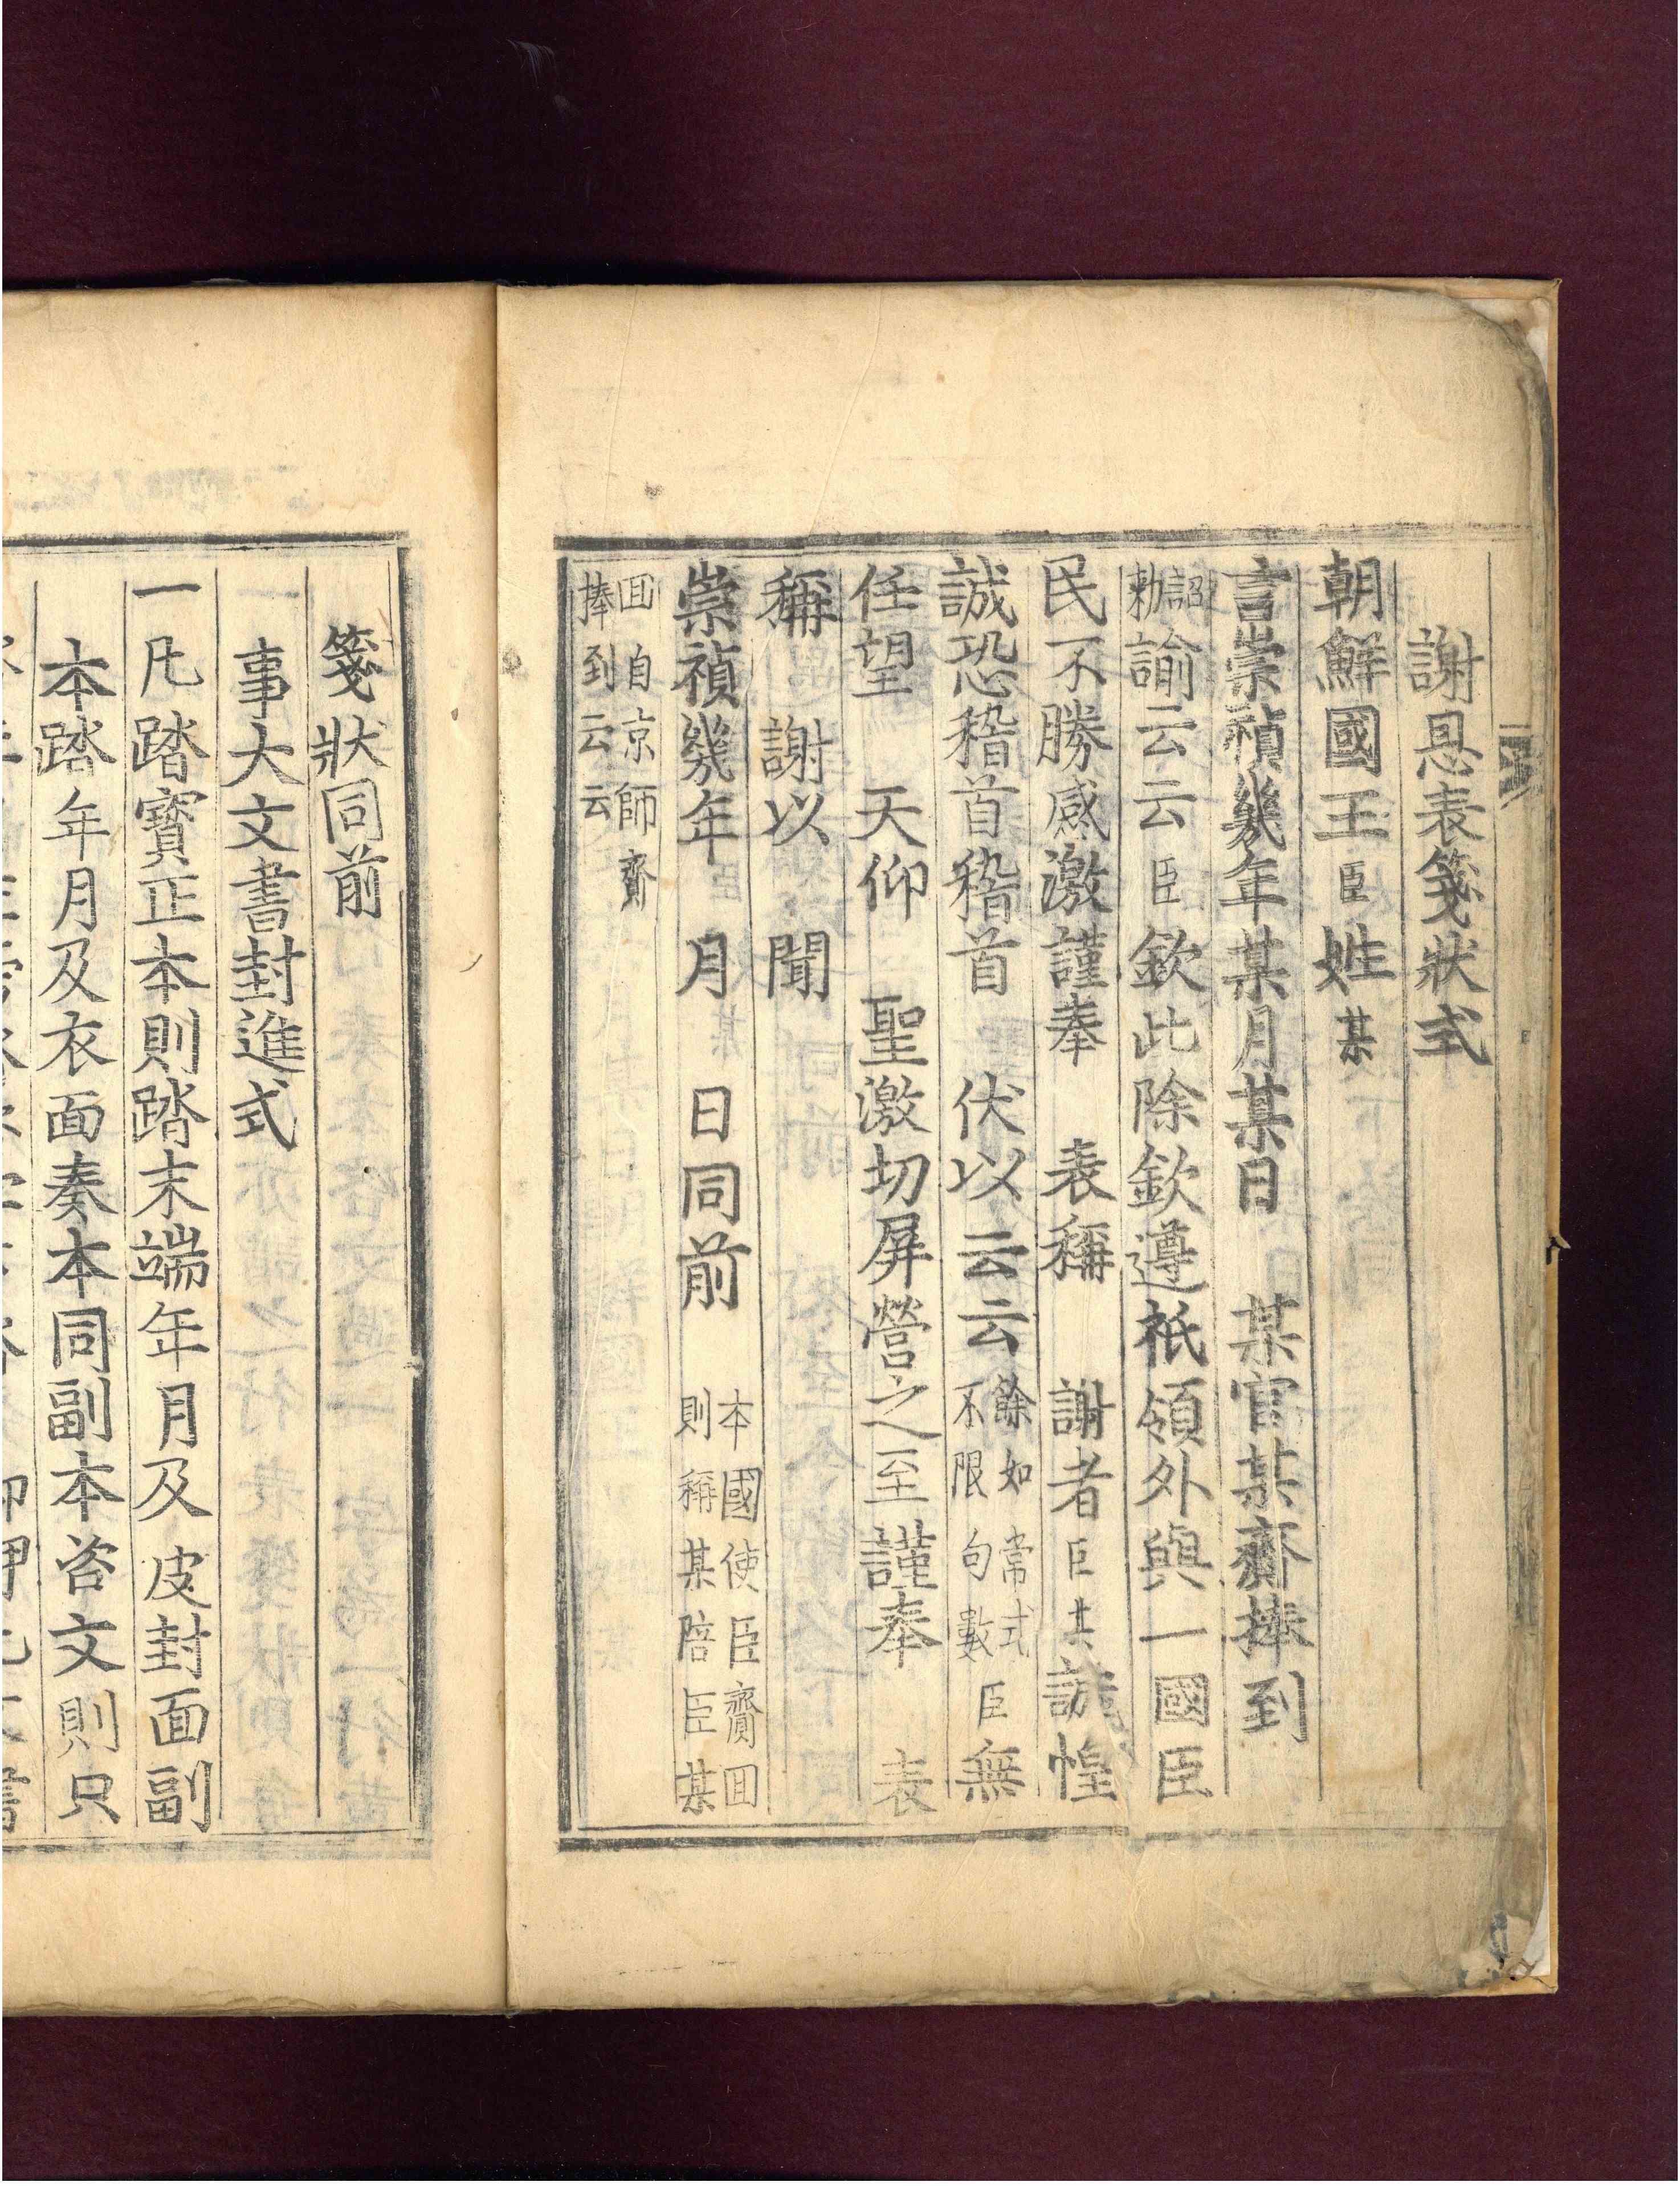 謝恩表箋狀式
朝鮮國王臣姓某
言崇禎幾年某月某日 某官某齎捧到
詔勑諭云云臣欽此除欽遵祗領外與一國臣
民不勝感激謹奉 表稱 謝者臣某誠惶
誠恐稽首稽首 伏以云云餘如常式不限句數臣無
任望 天仰 聖激切屏營之至謹奉 表
稱 謝以 聞
崇禎幾年 月 日同前 本國使臣齎回則稱某陪臣某
回自京師齎捧到云云
箋狀同前
事大文書封進式
一凡踏寶正本則踏末端年月及皮封面副
本踏年月及衣面奏本同副本咨文則只